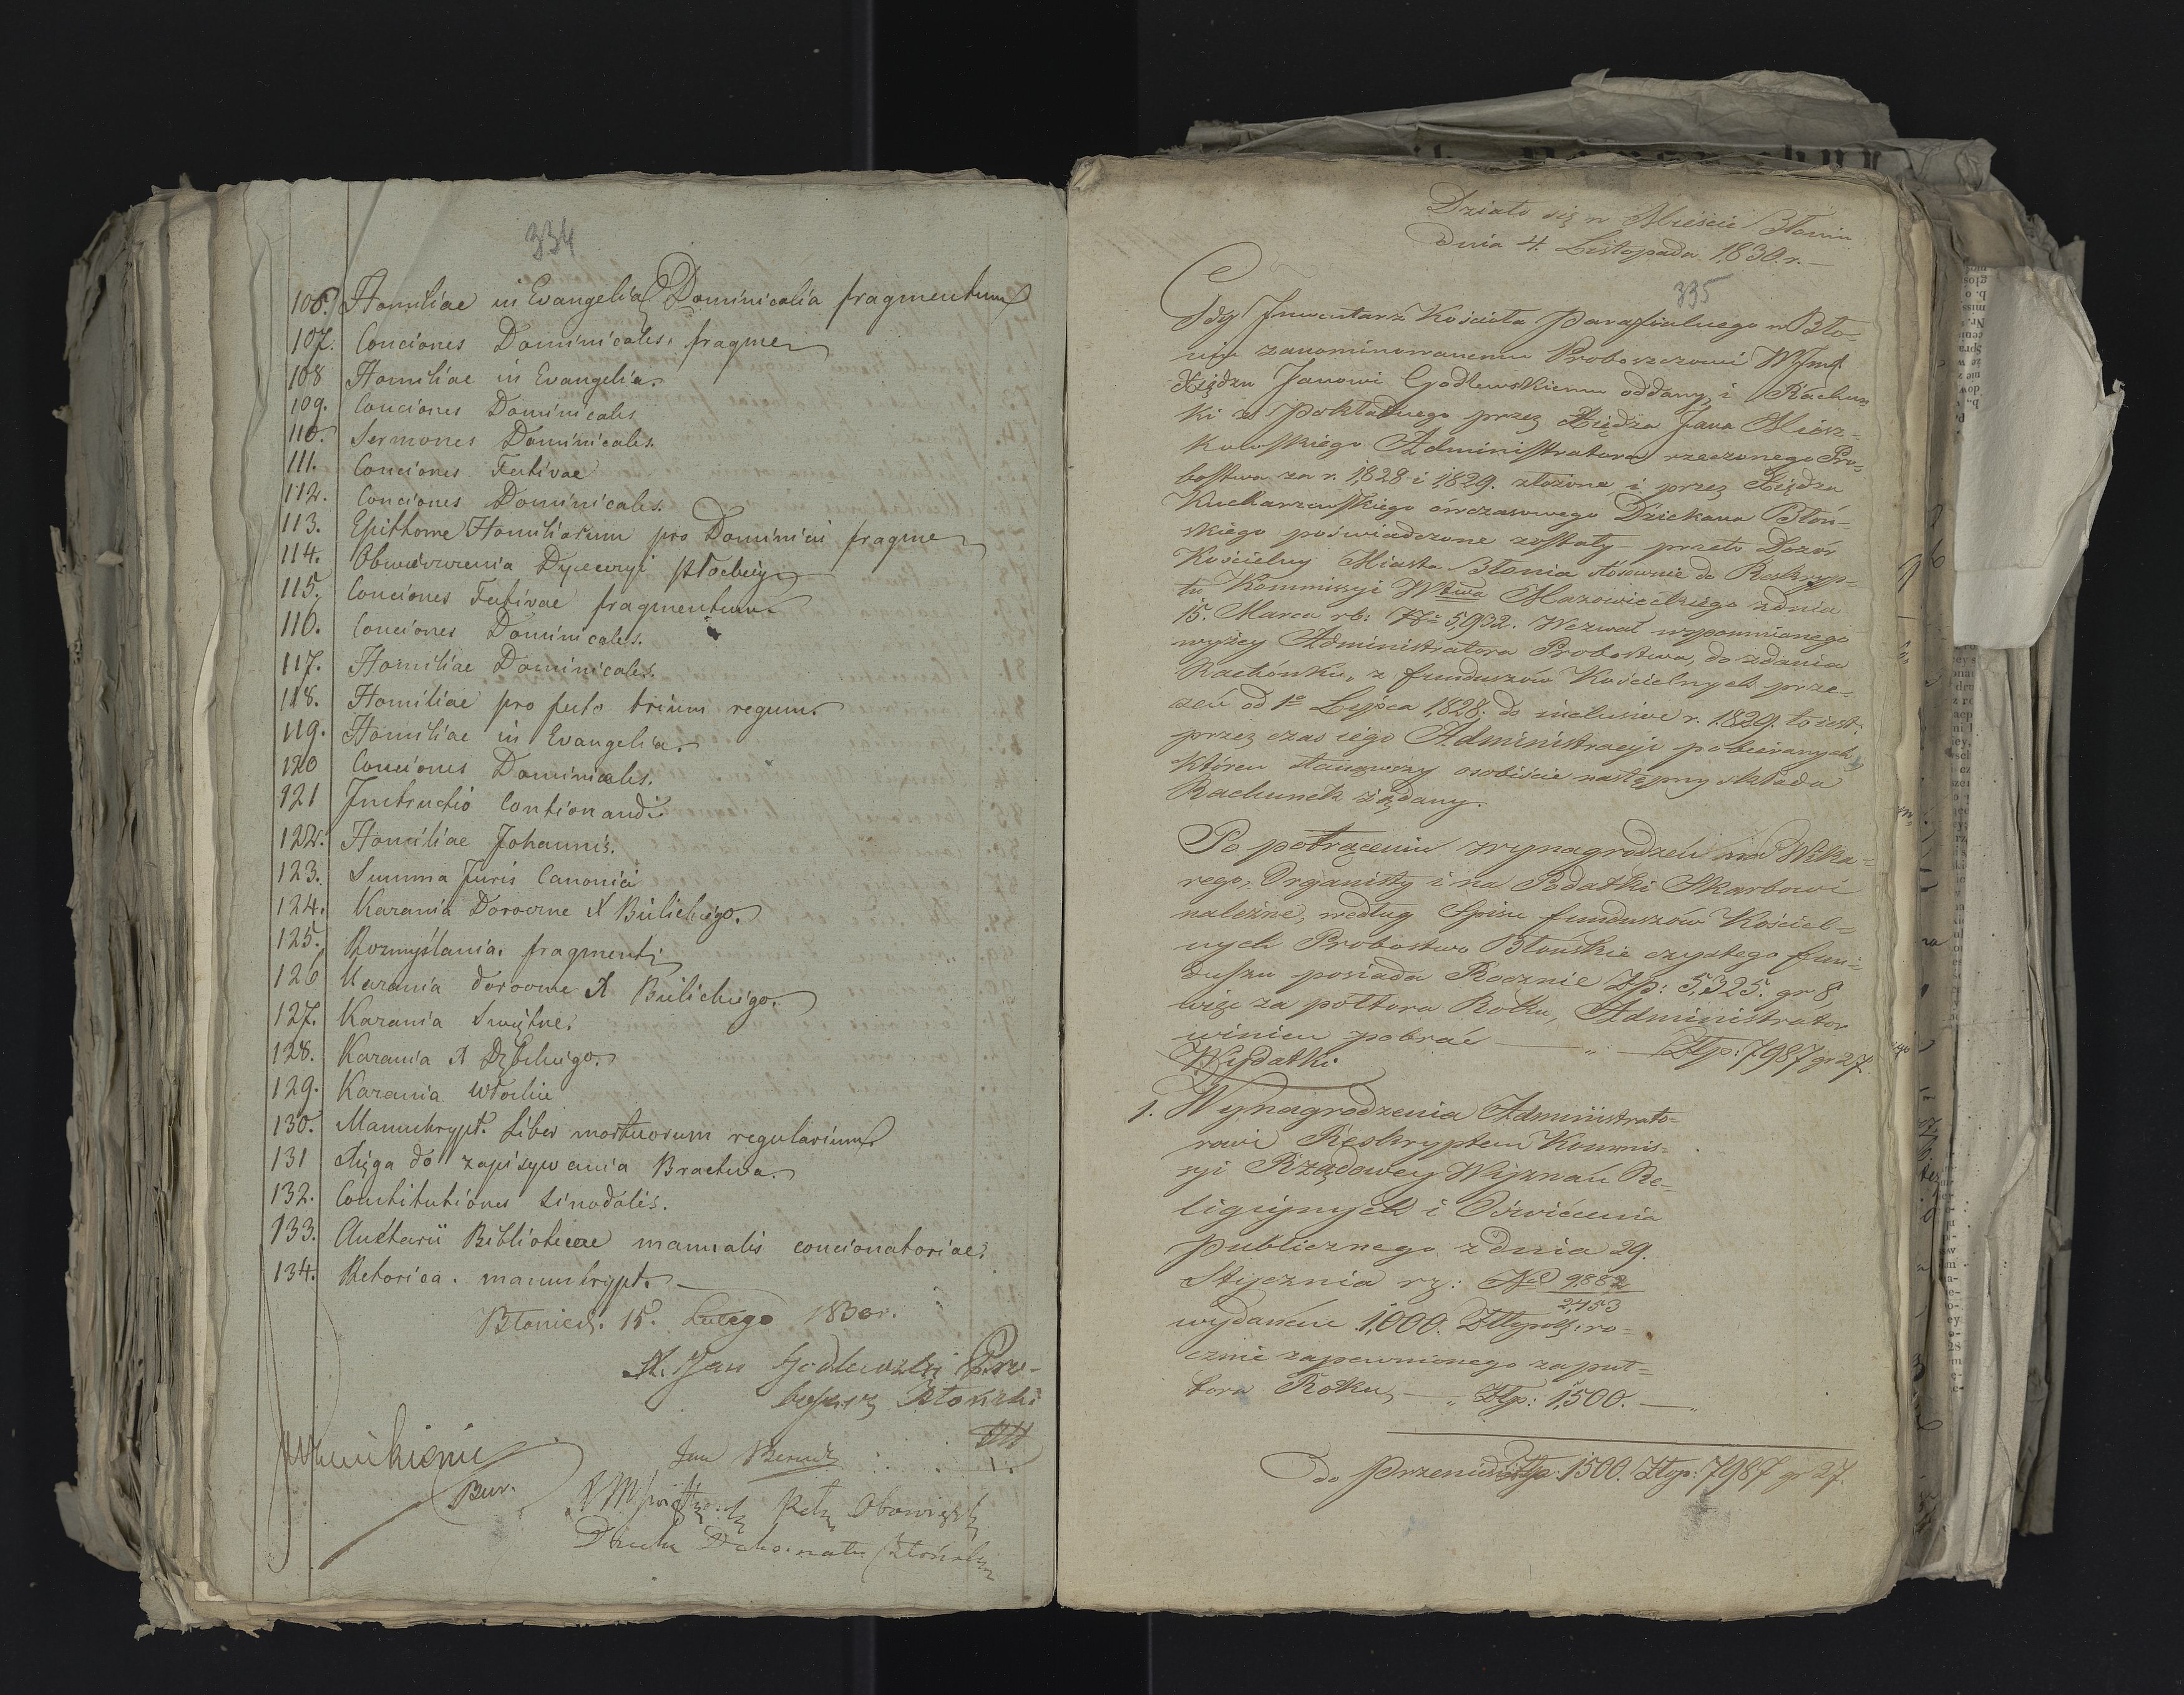 334
106. Homiliae in Evangelia Dominicalia fragmentum
107. Conciones Dominicales, fragmen
108 Homiliae in Evangelia.
109. Conciones Dominicales
110. Sermones Dominicales.
111. Conciones Festivae
112. Conciones Dominicales.
113. Epithome Homiliarum pro Dominicis fragmen
114. Obwieszczenia Dyecezyi płockiey
115. Conciones Festivae fragmentum.
116. Conciones Dominicales.
117. Homiliae Dominicales.
118. Homiliae pro festo trium regum.
119. Homiliae in Evangelia.
120 Conciones Dominicales.
121 Instructio Contionandi
122. Homiliae Johannis.
123. Summa Juris Canonici
124. Kazania Doroczne X Bielickiego.
125. Rozmyślania. fragmenti
126 Kazania doroczne X Bielickiego.
127. Kazania Swiętne.
128. Kazania X Dębickiego.
129. Kazania włoskie
130. Manuskrypt. Liber mortuorum regularium
131 Xięga do zapisywania Bractwa.
132. Constitutiones Sinodales.
133. Auctarii Bibliotecae manualis concionatoriae.
134. Retorica. manuskrypt.
Błonie d. 15. Lutego 1830 r.
X. Jan Godlewski Pro-
boszcz Błoński
Jan
Bur.
X M Pełn Obowiązki
Dziek Dekanatu Błońskiego
Działo się w Mieście Błoniu
dnia 4. Listopada 1830. r.
335
Gdy Inwentarz Kościoła Parafialnego w Bło-
niu zanominowanemu Proboszczowi WJmć
Xiędzu Janowi Godlewskiemu oddany, i Rachun
ki z Pokładnego przez Xiędza Jana Miesz-
kowskiego Administratora rzeczonego Pro-
bostwa za r. 1828 i 1829. złożone, i przez Xiędza
Kucharzewskiego ówczasowego Dziekana Błoń-
skiego poświadczone zostały – przeto Dozór
Kościelny Miasta Błonia stosownie do Reskryp-
tu Kommissyi Wtwa Mazowieckiego z dnia
15. Marca rb: No 5,932. Wezwał wspomnionego
wyżey Administratora Probostwa, do zdania
Rachunku, z funduszów Kościelnych prze-
zeń od 1o Lipca 1828. do inclusive r. 1829. to iest:
przez czas iego Administracyi pobieranych,
któren stanąwszy osobiście następny składa
Rachunek żądany.
Po potrąceniu wynagrodzeń na Wika-
rego, Organisty i na Podatki Skarbowi
należne, według Spisu funduszów Kościel-
nych Probostwo Błońskie czystego fun-
duszu posiada Rocznie Zp: 5,325. gr 8,
więc za półtora Roku, Administrator
winien pobrać — „ — Złp: 7987 gr 27.
Wydatki
1. Wynagrodzenia Administrato-
rowi Reskryptem Kommis-
syi Rządowey Wyznań Re-
ligiynych i Oświecenia
Publicznego z dnia 29.
Stycznia rz: No 9882
2,453
wydanem 1,000. Złtpols: ro-
cznie zapewnionego za puł-
tora Roku, — „ Złp: 1,500. — „
do Przeniesienia Złp. 1500. Złp: 7987 gr 27.